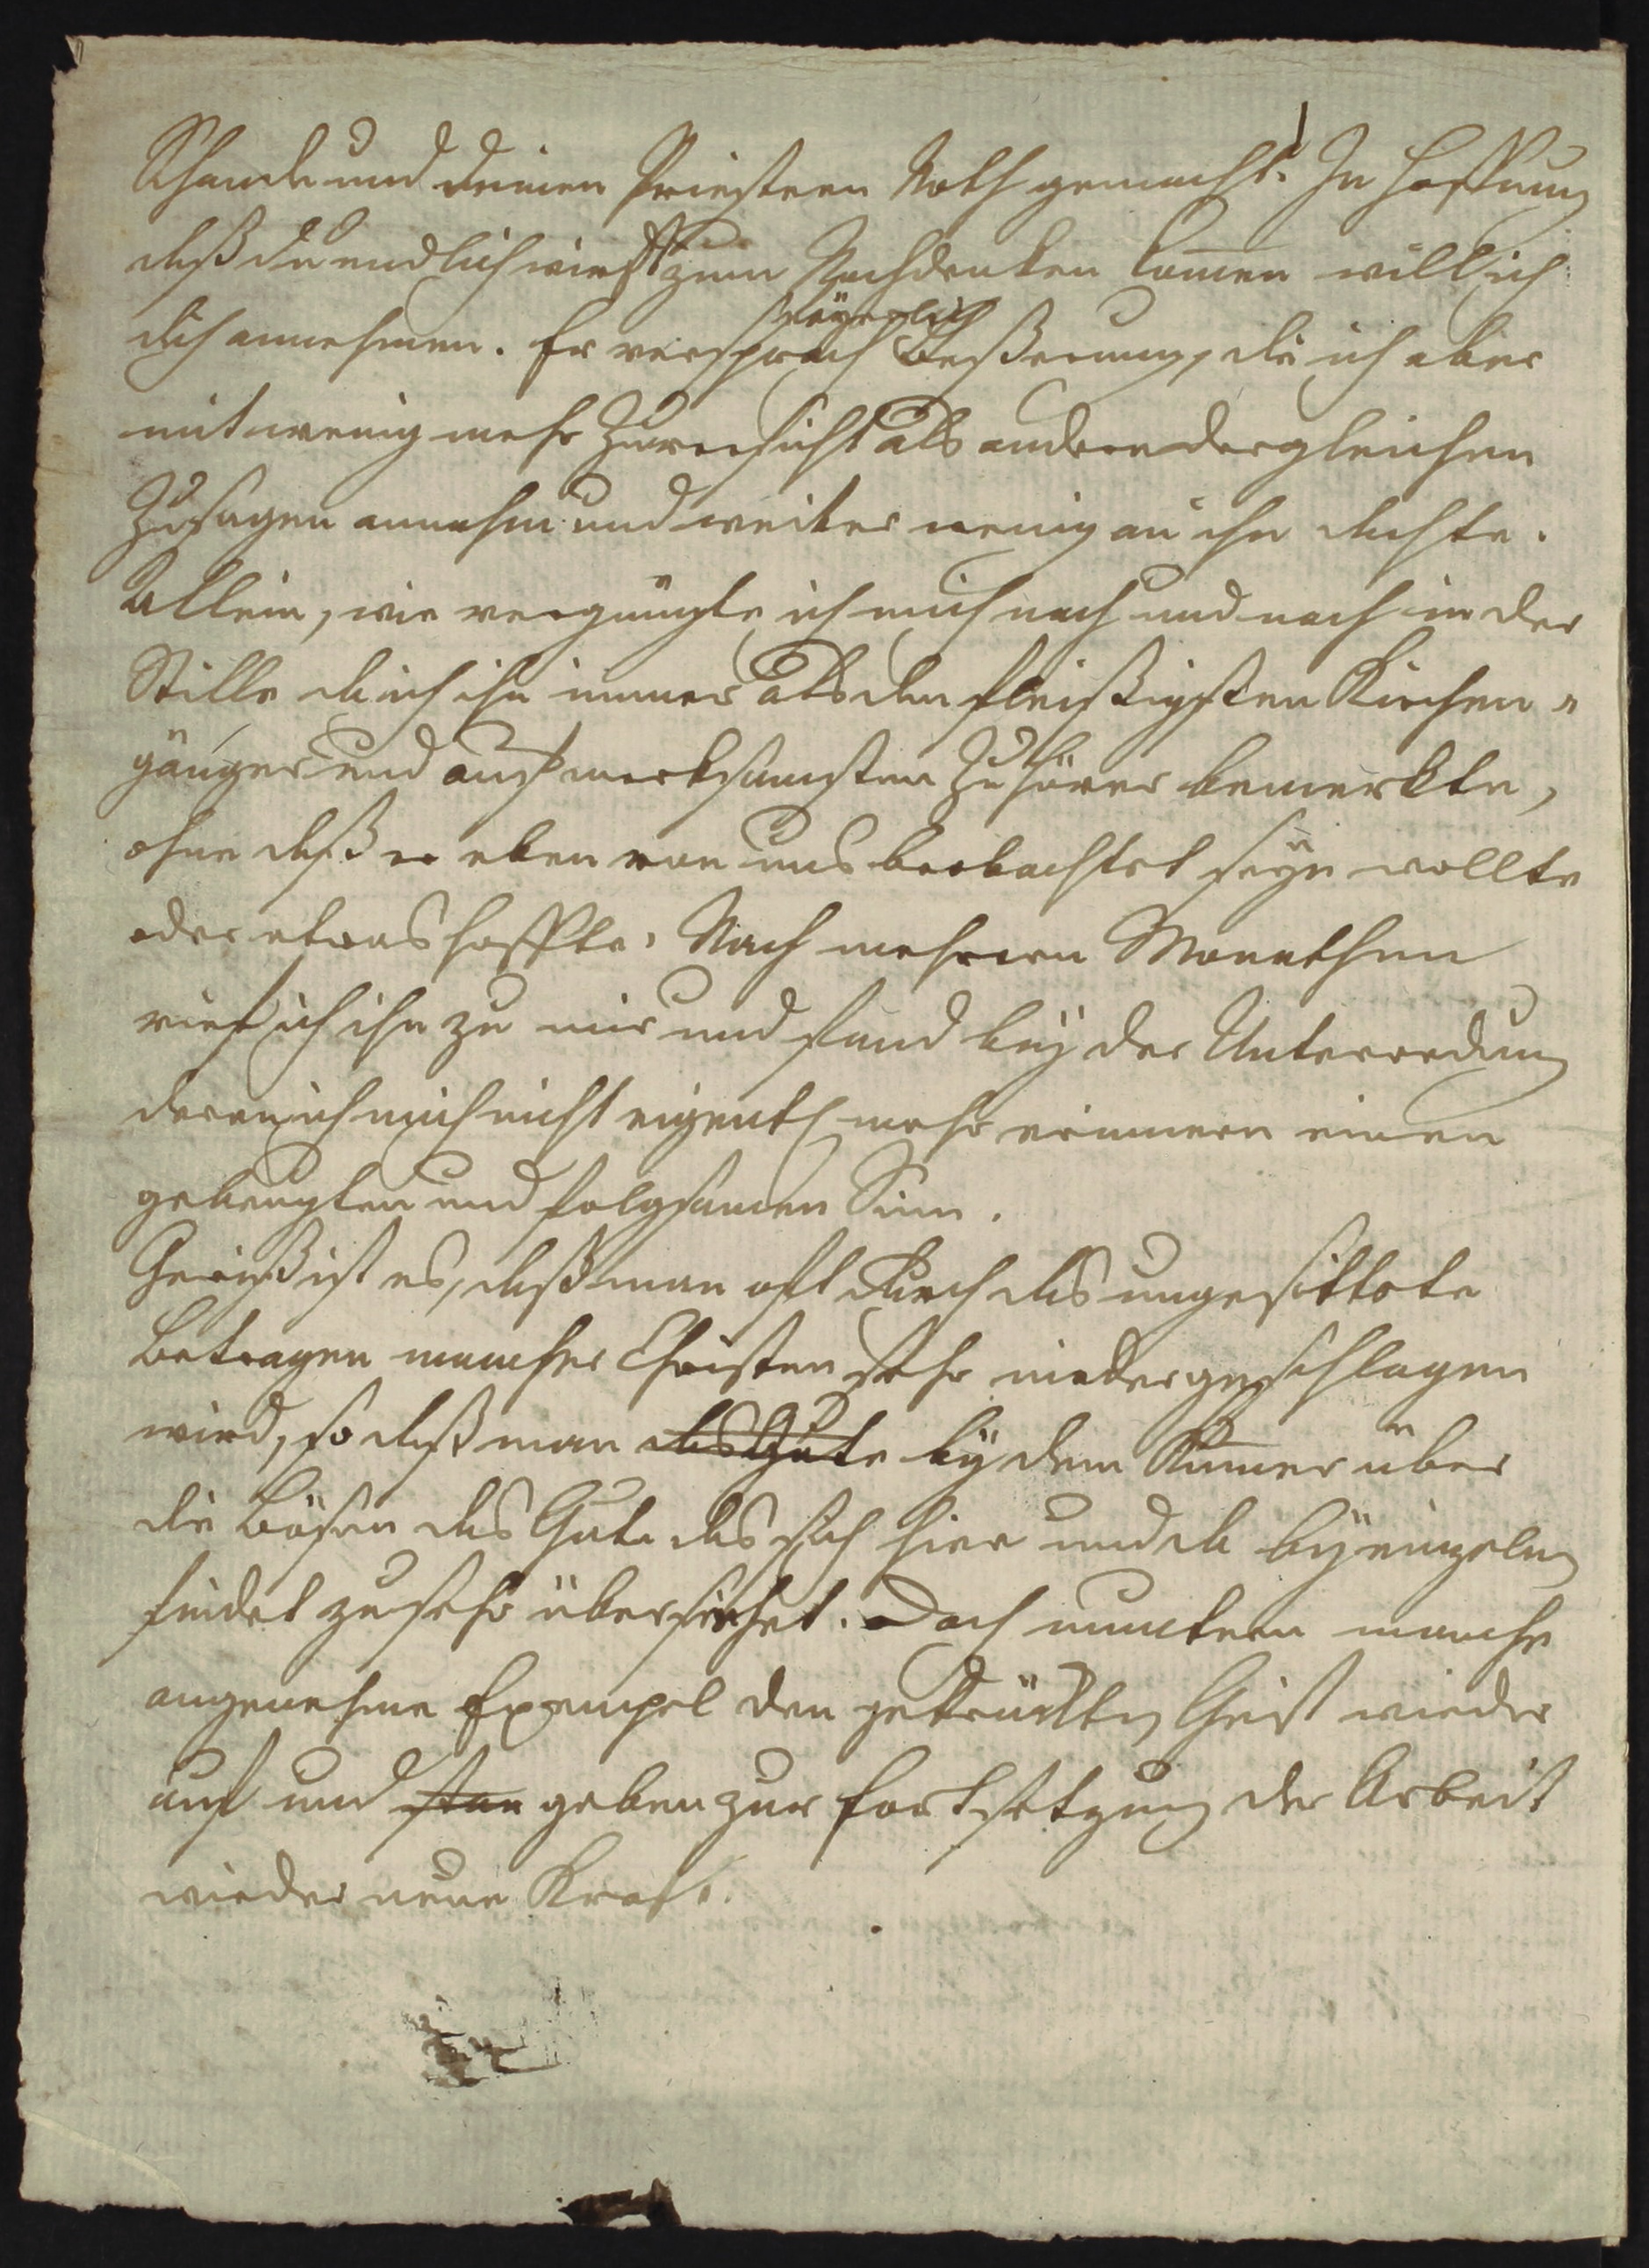 Schande und deinen Priestern Noth gemacht. In Hoffnung
daß du endlich wirst zum Nachdenken komen will ich
dich annehmen. Er versprach feyerlich Beßerung, die ich aber
mit wenig mehr Zuversicht als andere dergleichen
Zusagen annahm und weiter wenig an ihn dachte.
Allein, wie vergnügte ich mich nach und nach in der
Stille da ich ihn immer als den fleißigsten Kirchen-
gänger und aufmerksamsten Zuhörer bemerkte,
ohne daß er eben von uns beobachtet seyn wollte
oder etwas hoffte. Nach mehrern Monathen
rief ich ihn zu mir und fand bey der Unterredung
deren ich mich nicht eigentl mehr erinnern einen
gebeugten und folgsamen Sinn.
Gewiß ist es, daß man oft durch das ungesittete
Betragen mancher Christen sehr niedergeschlagen
wird, so daß man das Gute bey dem Kumer über
die Bösen das Gute das sich hier und da bey einzeln
findet zu sehr übersiehet. Doch muntern manche
angenehme Exempel den gedrückten Geist wieder
auf und geben zur Fortsetzung der Arbeit
wieder neue Kraft.